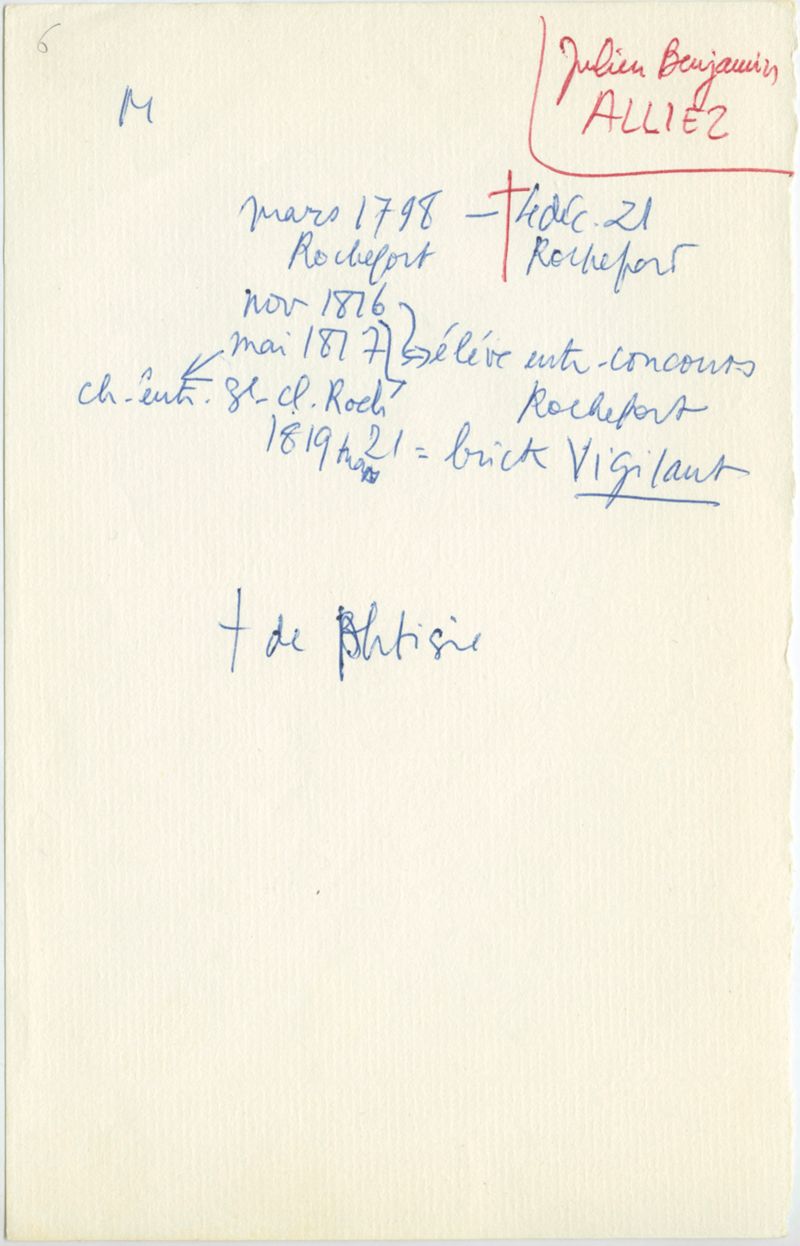 6
Julien Benjamin
ALLIEZ
M
mars 1798 — † 4 déc. 21
Rochefort Rochefort
nov 1816
mai 1817 élève entr-concours
ch-entr. Rochefort
1819 21 = brick Vigilant
† de Phtisie